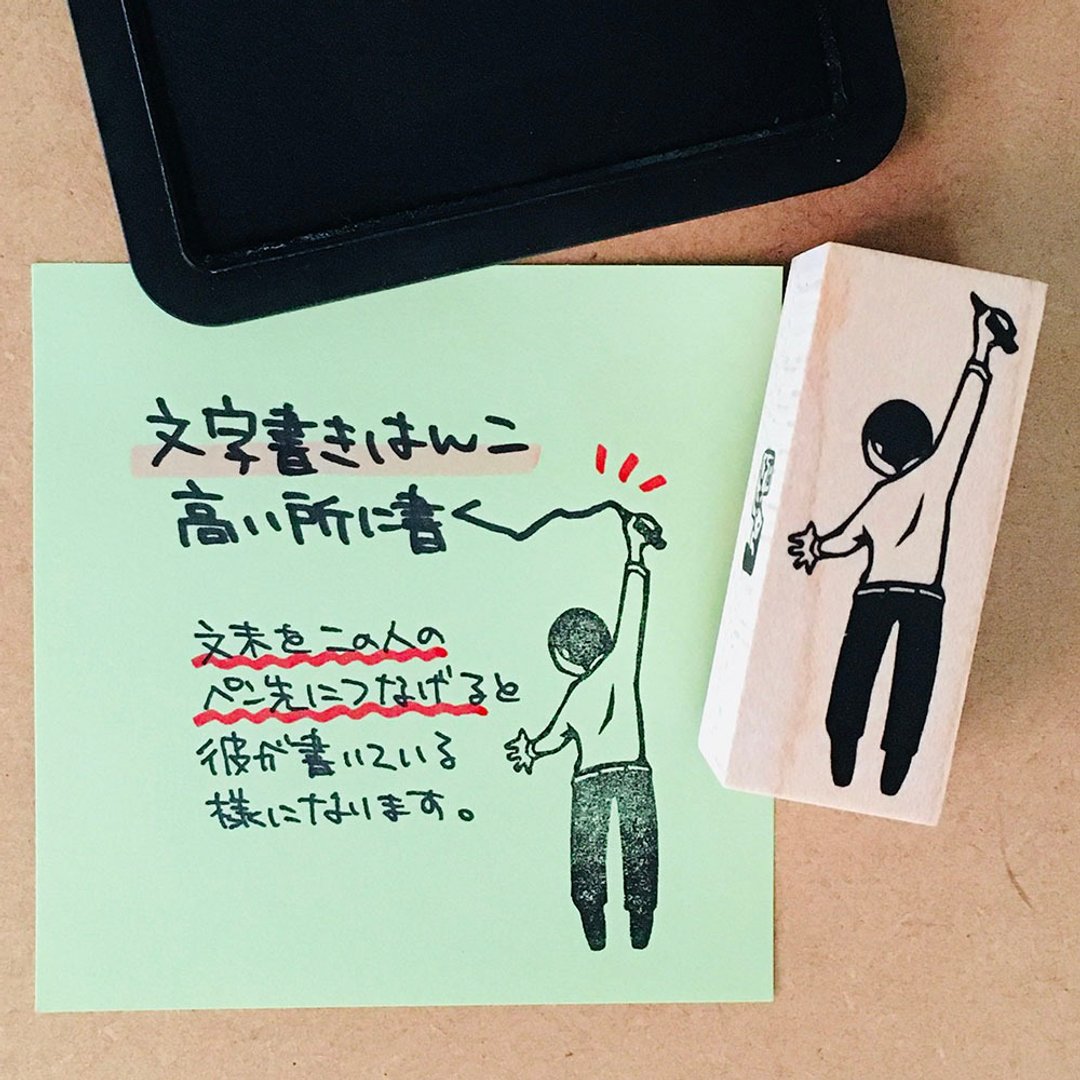 文字書きはんこ
高い所に書く
文末をこの人の
ペン先につなげると
彼が書いている
様になります。